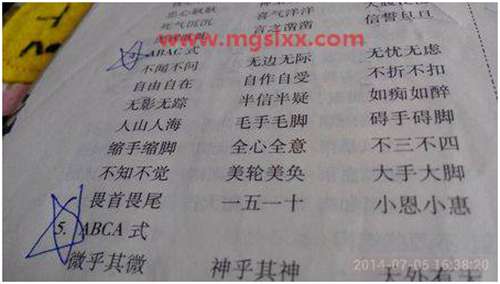 喜气洋洋
死气沉沉 言之凿凿 信誓旦旦
www.mgslxx.com
ABAC 式
不闻不问 无边无际 无忧无虑
自由自在 自作自受 不折不扣
无影无踪 半信半疑 如痴如醉
人山人海 毛手毛脚 碍手碍脚
缩手缩脚 全心全意 不三不四
不知不觉 美轮美奂 大手大脚
畏首畏尾 一五一十 小恩小惠
5. ABCA 式
微乎其微 神乎其神 天外有天
2014-07-05 16:38:20